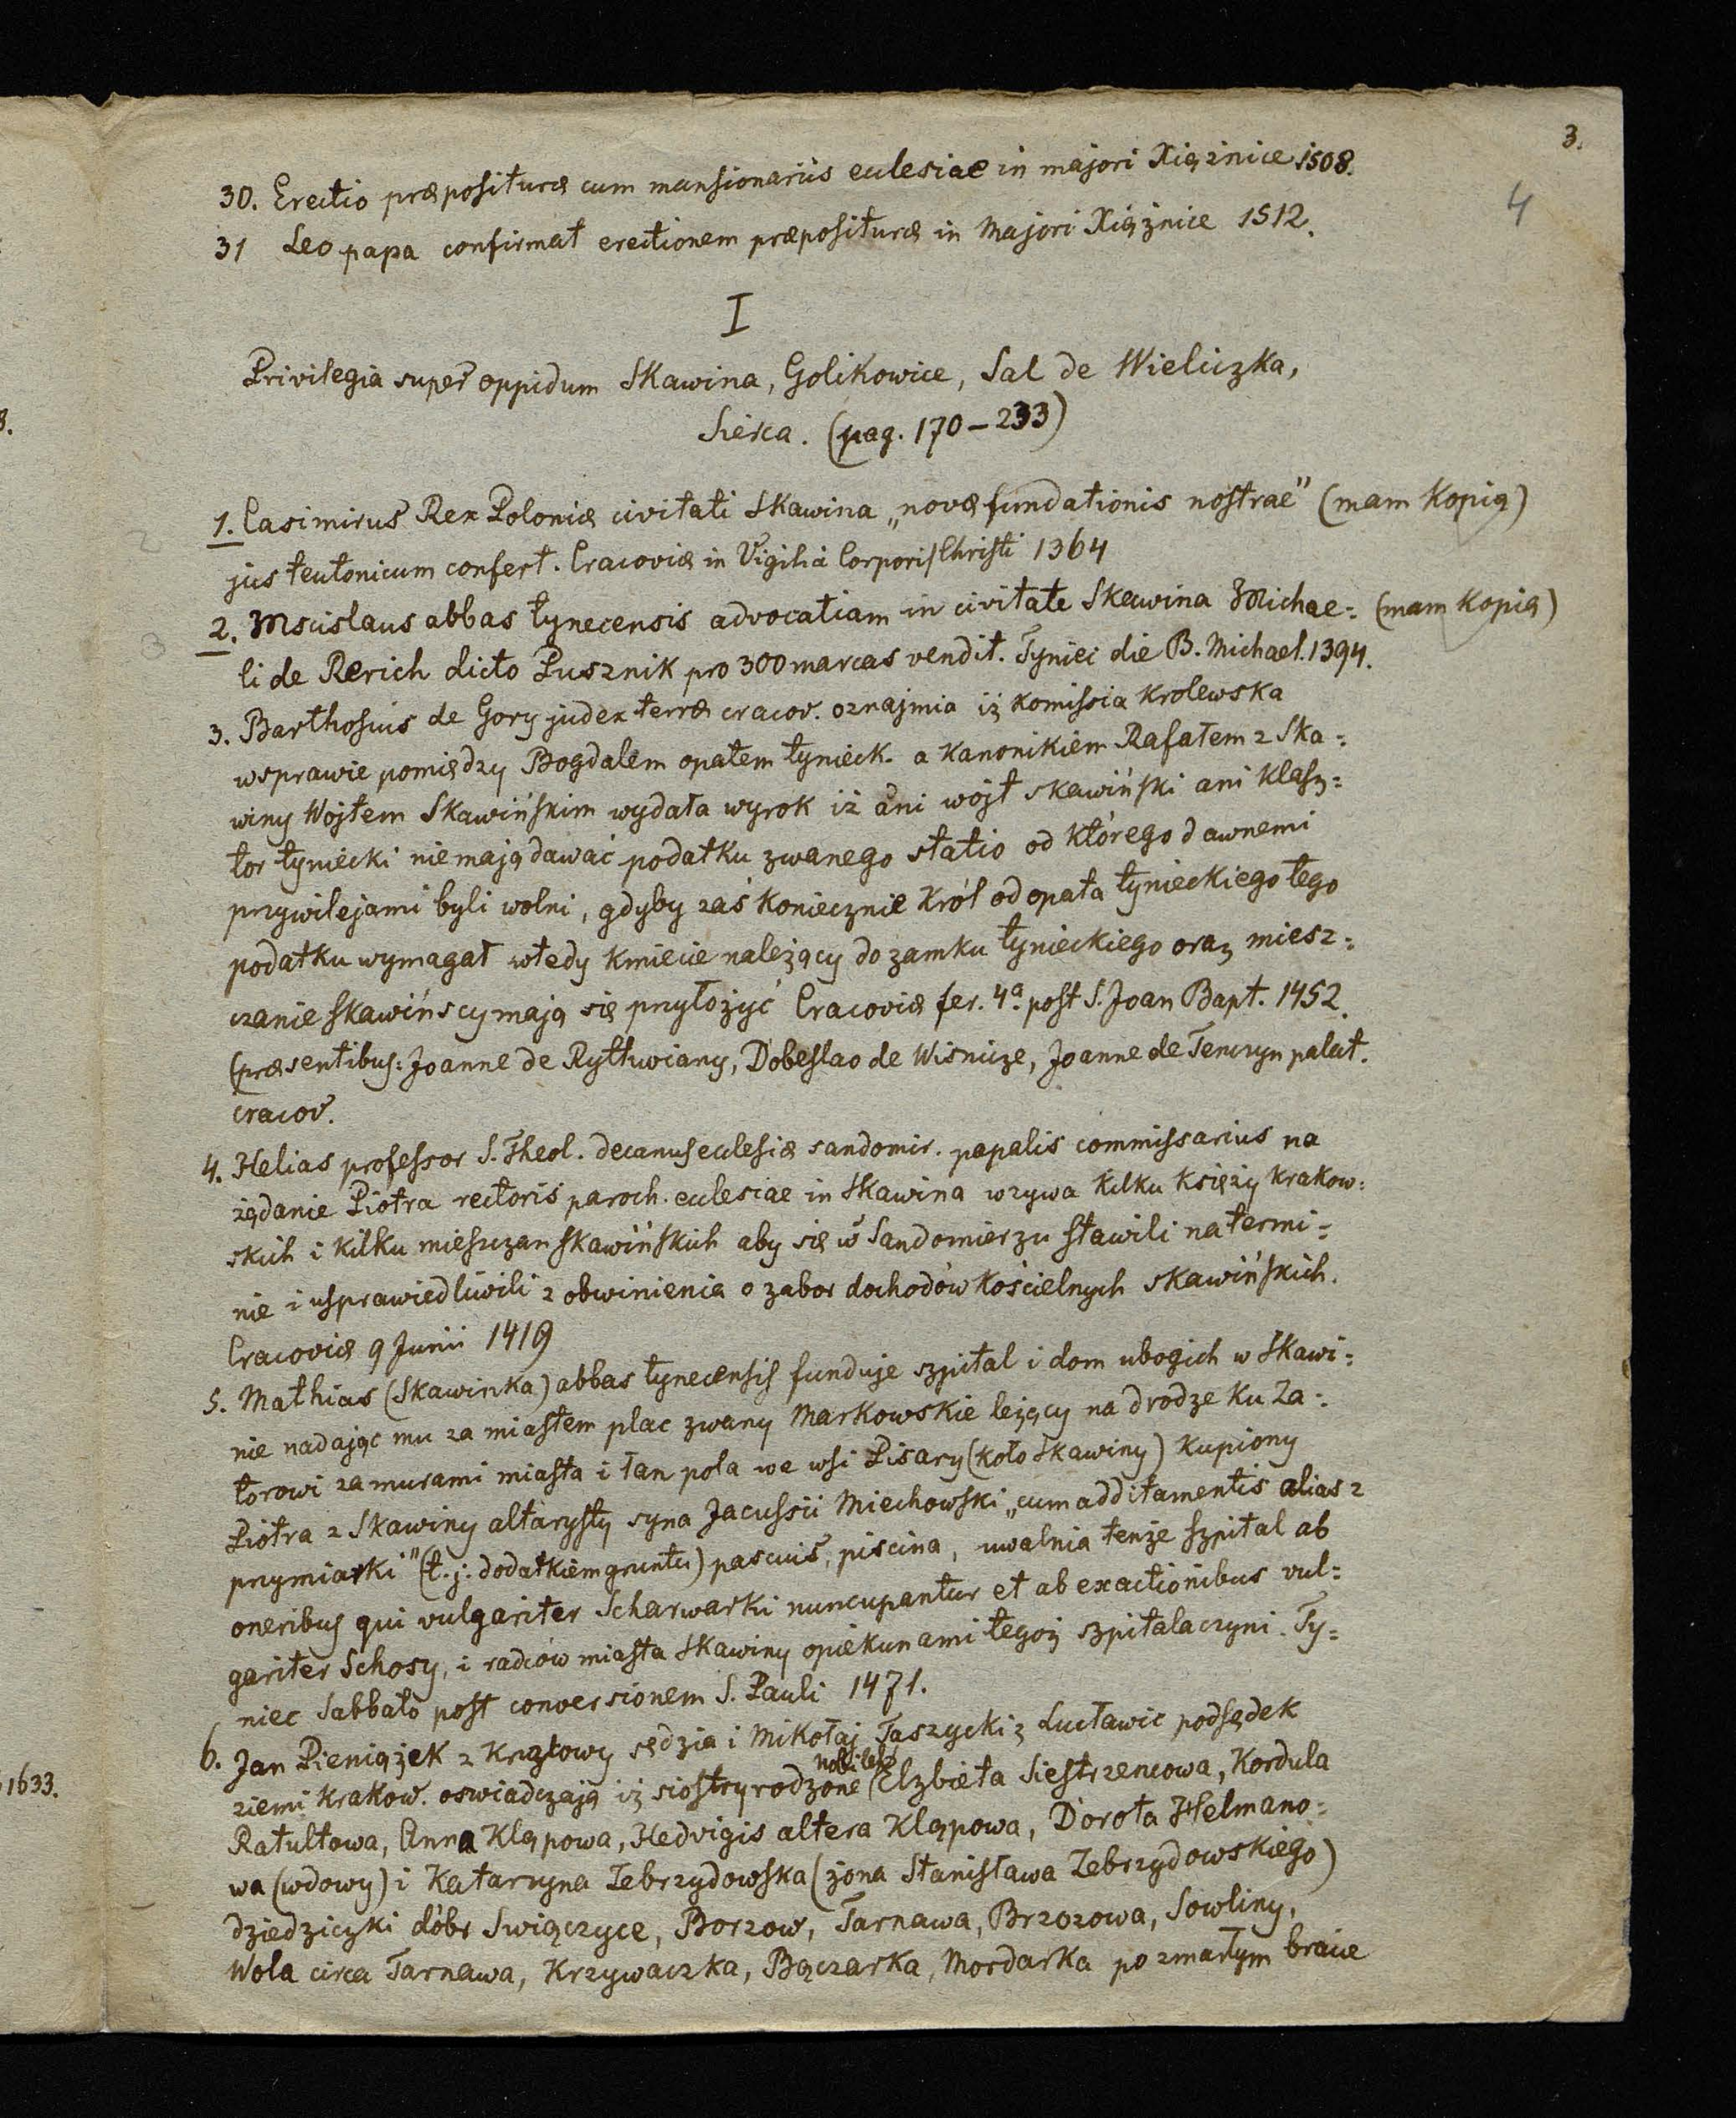 3.
4
30. Erectio præposituræ cum mansionariis ecclesiae in majori Xiąźnice 1508.
31 Leo papa confirmat erectionem præposituræ in Majori Xiążnice 1512.
I
Privilegia super oppidum Skawina, Golikowice, Sal de Wieliczka,
Sierca. (pag. 170-233)
1. Casimirus Rex Poloniæ civitati Skawina „novæ fundationis nostrae" (mam Kopią)
jus teutonicum confert. Cracoviæ in Vigilia Corporis Christi 1364
2. Mscislaus abbas tynecensis advocatiam in civitate Skawina Michae= (mam Kopią)
li de Rerich dicto Pusznik pro 300 marcas vendit. Tyniec die B. Michael. 1394.
3. Barthosius de Gory judex terræ cracov. oznajmia iż komissia krolewska
wsprawie pomiędzy Bogdalem opatem tynieck. a kanonikiem Rafałem z Ska=
winy Wojtem Skawińskim wydała wyrok iż ani wójt skawiński ani klasz=
tor tyniecki nie mają dawać podatku zwanego statio od którego dawnemi
przywilejami byli wolni, gdyby zaś koniecznie Król od opata tynieckiego tego
podatku wymagał wtedy kmiecie należący do zamku tynieckiego oraz miesz=
czanie skawińscy mają się przyłożyć Cracoviæ fer. 4ª post S. Joan Bapt. 1452.
(præsentibus: Joanne de Rythwiany, Dobeslao de Wisnicze, Joanne de Tenczyn palat.
cracov.
4. Helias professor S. Theol. decanus ecclesiæ sandomir. papalis commissarius na
żądanie Piotra rectoris paroch. ecclesiae in Skawina wzywa kilku księży krakow=
skich i kilku mieszczan skawińskich aby się w Sandomierzu stawili na termi=
nie i usprawiedliwili z obwinienia o zabor dochodów kościelnych skawińskich.
Cracoviæ 9 Junii 1419
5. Mathias (Skawinka) abbas tynecensis funduje szpital i dom ubogich w Skawi=
nie nadając mu za miastem plac zwany Markowskie leżący na drodze ku Za=
torowi za murami miasta i łan pola we wsi Pisary (koło Skawiny) kupiony
Piotra z Skawiny altarysty syna Jacussii Miechowski „cum additamentis alias z
przymiarki" (t. j. dodatkiem gruntu) pascuis, piscina, uwalnia tenże szpital ab
oneribus qui vulgariter Scharwarki nuncupantur et ab exactionibus vul=
gariter Schosy, i radców miasta Skawiny opiekunami tegoż szpitala czyni. Ty=
niec Sabbato post conversionem S. Pauli 1471.
6. Jan Pieniążek z Krużlowy sędzia i Mikołaj Taszycki z Lucławic podsędek
nobiles
ziemi krakow. oswiadczają iż siostry rodzone (Elzbieta Siestrzencowa, Kordula
Ratultowa, Anna Kląpowa, Hedvigis altera Kląpowa, Dorota Helmano=
wa (wdowy) i Katarzyna Zebrzydowska (żona Stanisława Zebrzydowskiego)
dziedziczki dóbr Swiączyce, Borzow, Tarnawa, Brzozowa, Sowliny,
Wola circa Tarnawa, Krzywaczka, Bączarka, Mordarka po zmarłym bracie
1633.